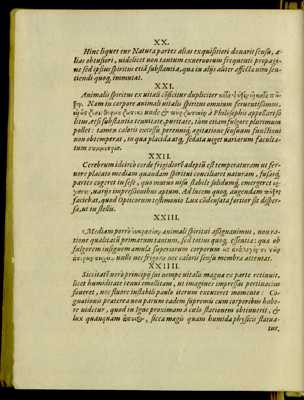 XX.
Hinc liquet cur Natura partes alias exquisitiori donarit sensu, a-
lias obtusiori, uidelicet non tantum exuccuorum frequenti propagi-
ne sed ipsius spiritus etiã substantia, qua in alijs aliter affecta uim sen-
tiendi quoq; immutat.
XXI.
Animalis spiritus ex uitali
Nam in corpore animali uitalis spiritus omnium feruentissimus,
à Philosophis appellare so
litus, assi substantia tenuitate, puritate, tum etiam fulgore plurimum
pollet: tamen caloris excessu perenniq; agitatione sensuum functioni
non obtemperat, in qua placida atq; sedata uiget uariarum faculta-
tum
XXII.
Cerebrum ideirco corde frigidius adeptũ est temperatum ut fer-
uore placato mediam quandam spiritus conciliaret naturam, fusosq;
partes cogeret in sese, quo motus uim stabile subdens, emergeret
uarijs impressionibus aptum. Ad lucem quoq; augendam
faciebat, quod Opticorum testimonio Lux cõdensata fortior sit disper-
sa, ut in stellis.
XXIII.
Mediam porrò animali spiritui assignauimus, non ra-
tione qualitatũ primarum tantum, sed totius quoq; essentia: qua ob
fulgorem insignem amula superiorum corporum
nullo nec frigoris nec caloris sensu membra attentat.
XXIIII.
Siccitatẽ uerò principij sui nempe uitalis magna ex parte retinuit,
licet humiditate tenui emollitam, ut imagines impressas pertinacius
foueret, nec fluore instabili paulò iterum excuteret momento: Co-
gnationis praterea non parum eadem supremis cum corporibus habe-
re uidetur, quod in Igne proximam à calo stationem obtinuerit, &
lux quanquam sicca magis quam humida physicis statua-
tur,